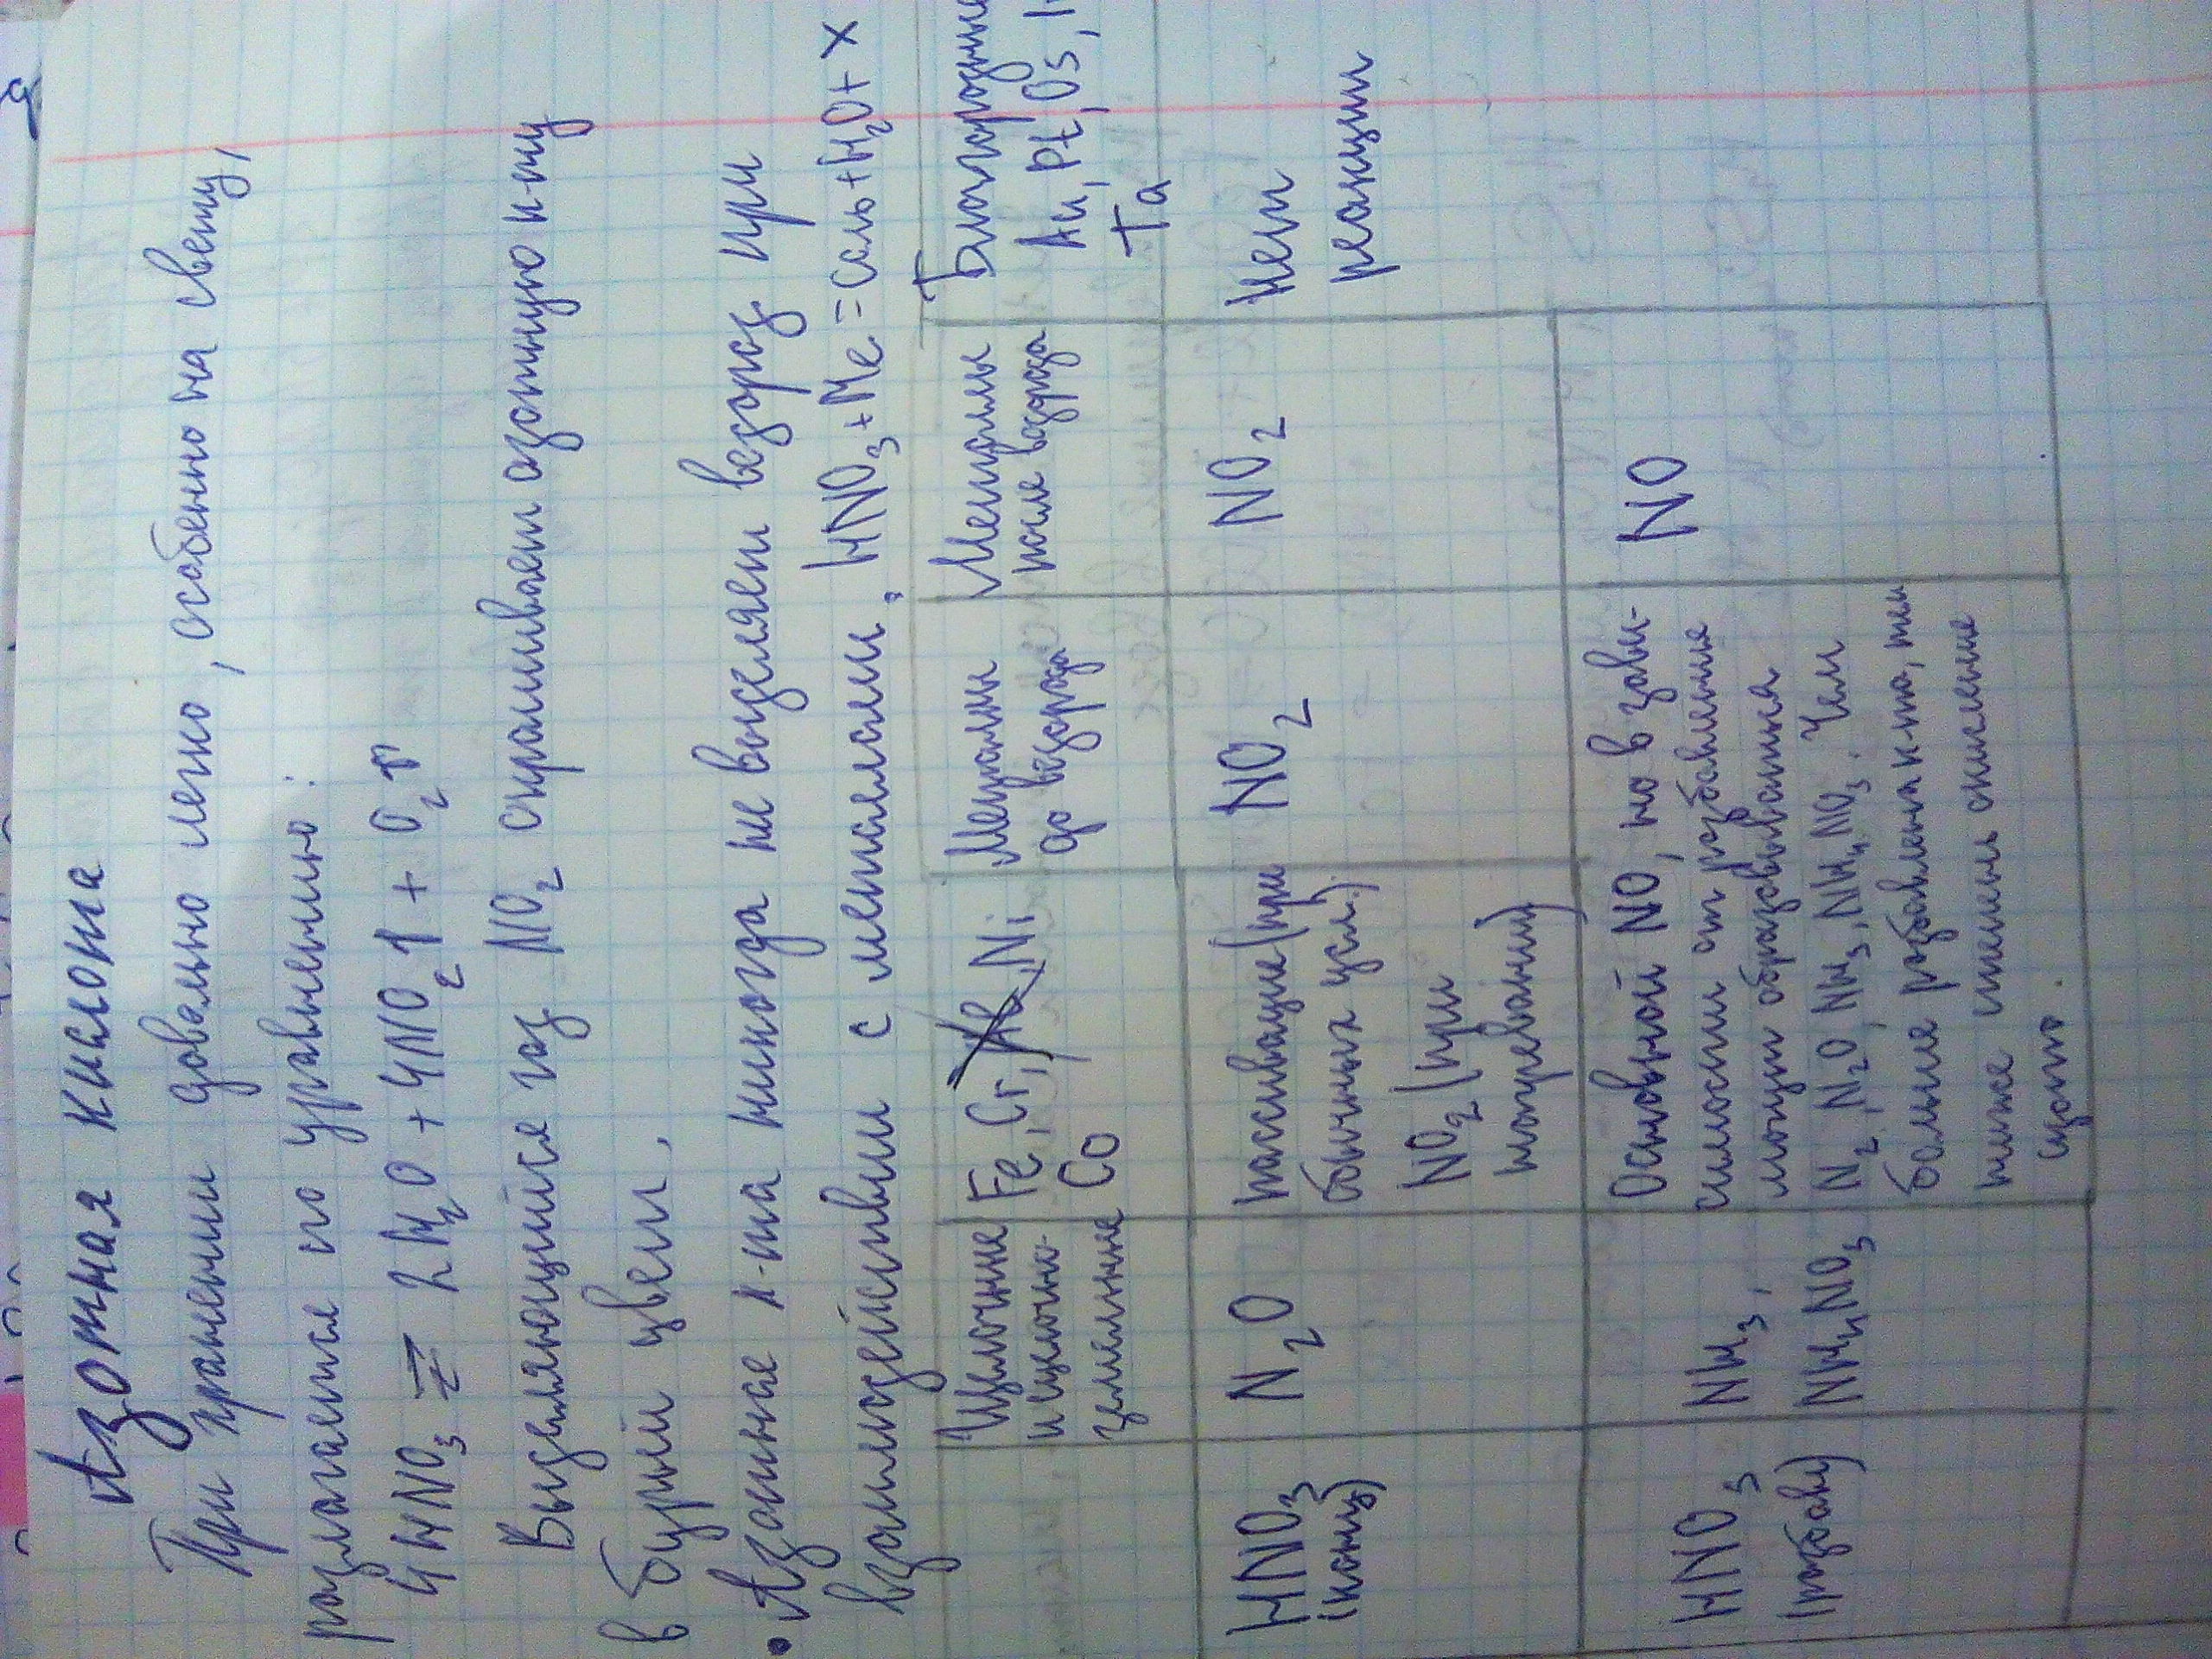 Азотная кислота
При хранении довольно легко, особенно на свету,
разлагается по уравнению:
4HNO3 = 2H2O + 4NO2↑ + O2↑
Выделяющийся газ NO2 окрашивает азотную к-ту
в бурый цвет.
• Азотная к-та никогда не выделяет водород при
взаимодействии с металлами. HNO3+Me=соль+H2O+X
Щелочные
и щелочно-
земельные
Fe, Cr, Ni
Co
Металлы
до водорода
Металлы
после водорода
Благородные
Au, Pt, Os,
Ta
HNO3
(конц)
N2O
пассивация (при
обычных усл.)
NO2 (при
нагревании)
NO2
NO2
Нет
реакции
HNO3
(разбавл)
NH3,
NH4NO3
Основной NO, но в зави-
симости от разбавления
могут образовываться
N2, N2O, NH3, NH4NO3. Чем
больше разбавлена к-та, тем
ниже степень окисления
азота.
NO